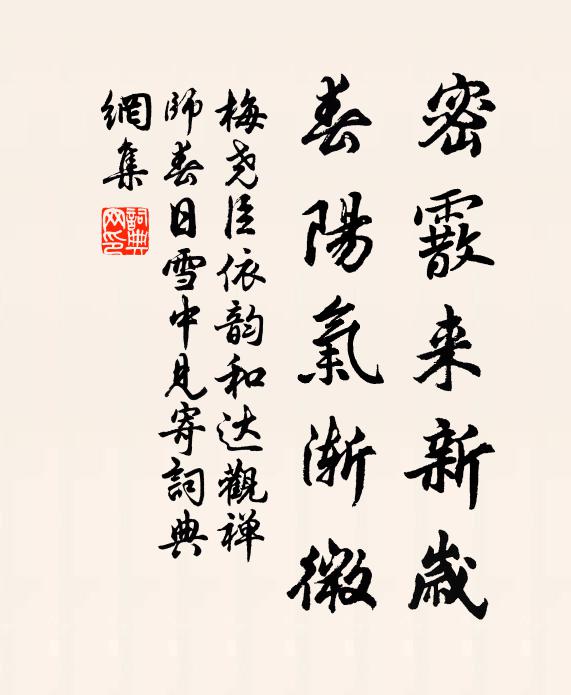 密霰来新歲
春陽氣漸微
梅尧臣依韵和达觀禅
師春日雪中見寄詞典
網集
詞典网印